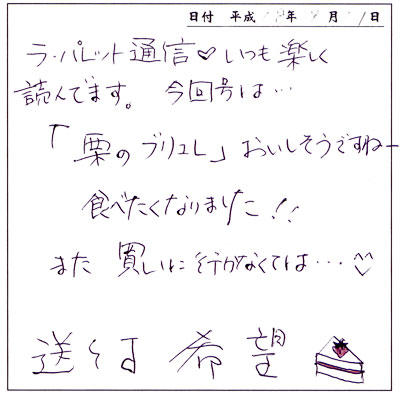 日付 平成 年 月 日
ラ・パレット通信♡いつも楽しく
読んでます。 今回号は…
「栗のブリュレ」おいしそうですねー
食べたくなりました!!
また 買いに行かなくては…
送付 希望